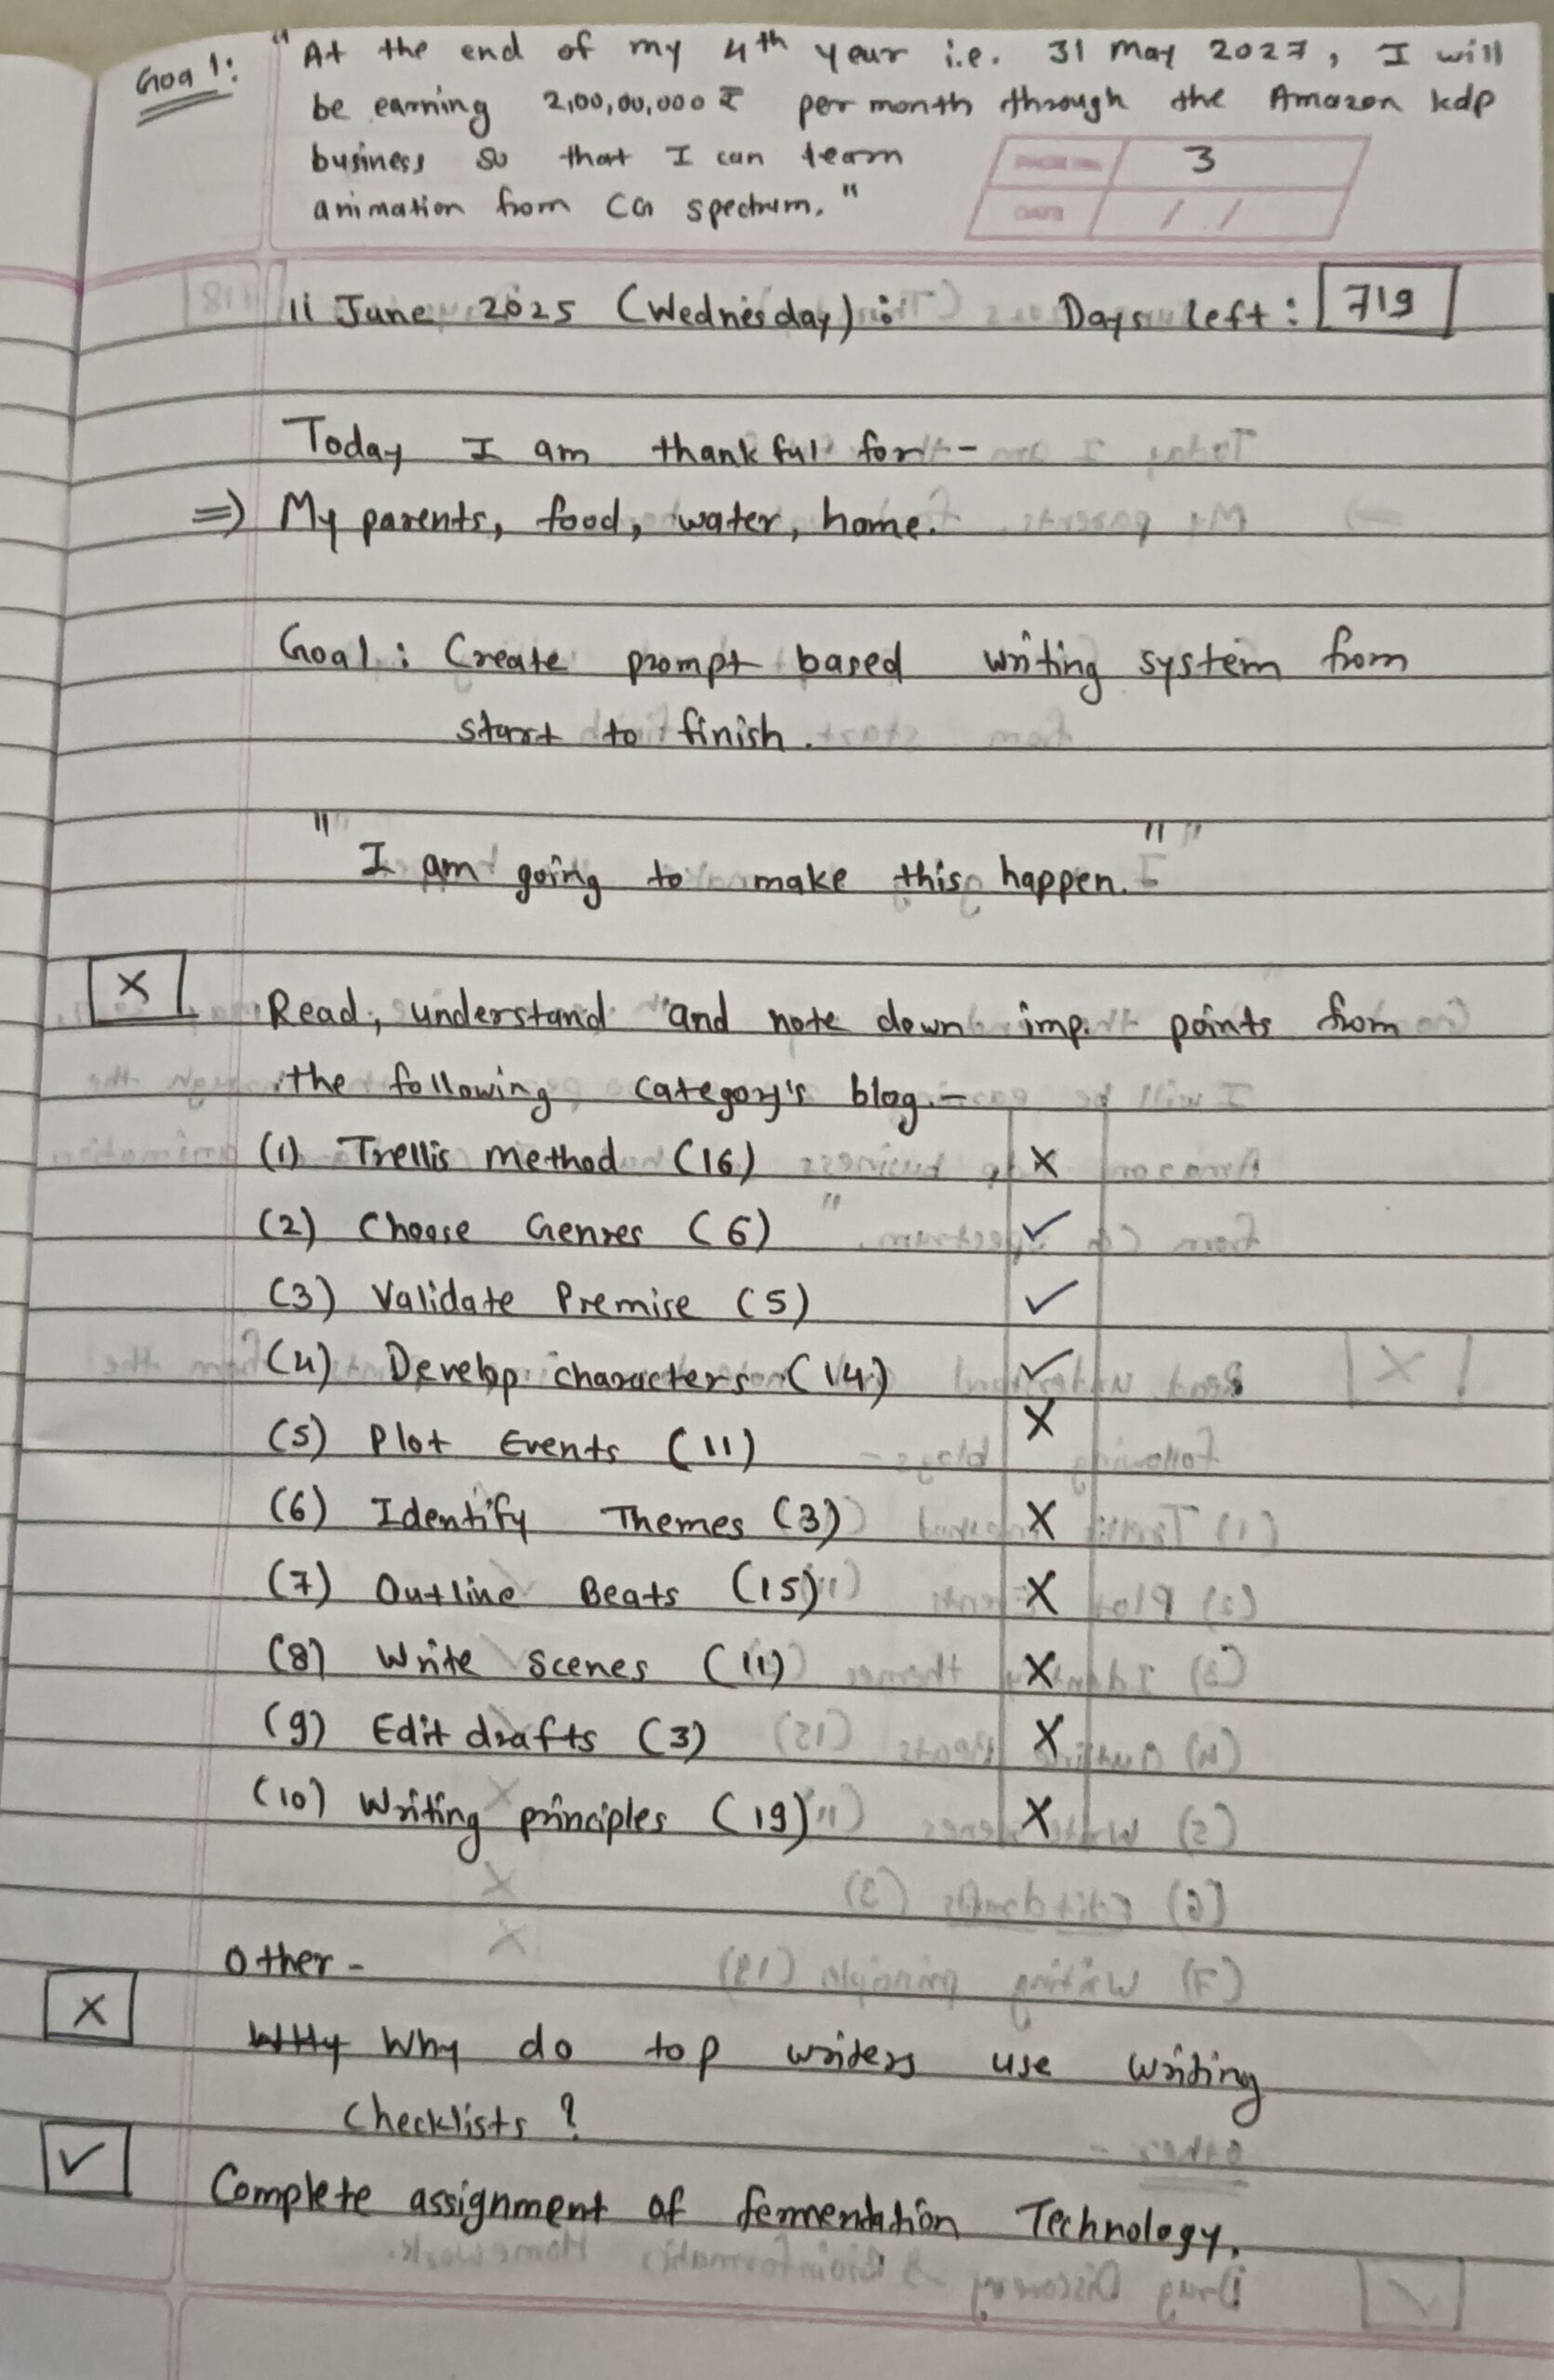 Goal: "At the end of my 4th year i.e. 31 May 2027, I will
be earning 2,00,00,000 ₹ per month through the Amazon kdp
business so that I can learn
animation from CG spectrum."
3
DATE / /
11 June 2025 (Wednesday): Days left: 719
Today I am thankful for -
⇒ My parents, food, water, home.
Goal: Create prompt based writing system from
start to finish.
"I am going to make this happen."
X Read, understand and note down imp. points from
the following category's blog.-
(1) Trellis method (16) X
(2) Choose Genres (6) ✓
(3) Validate Premise (5) ✓
(4) Develop characters (14) ✓
(5) Plot Events (11) X
(6) Identify Themes (3) X
(7) Outline Beats (15) X
(8) Write Scenes (11) X
(9) Edit drafts (3) X
(10) Writing principles (19) X
Other -
X WHy Why do top writers use writing
checklists ?
✓ Complete assignment of fermentation Technology.